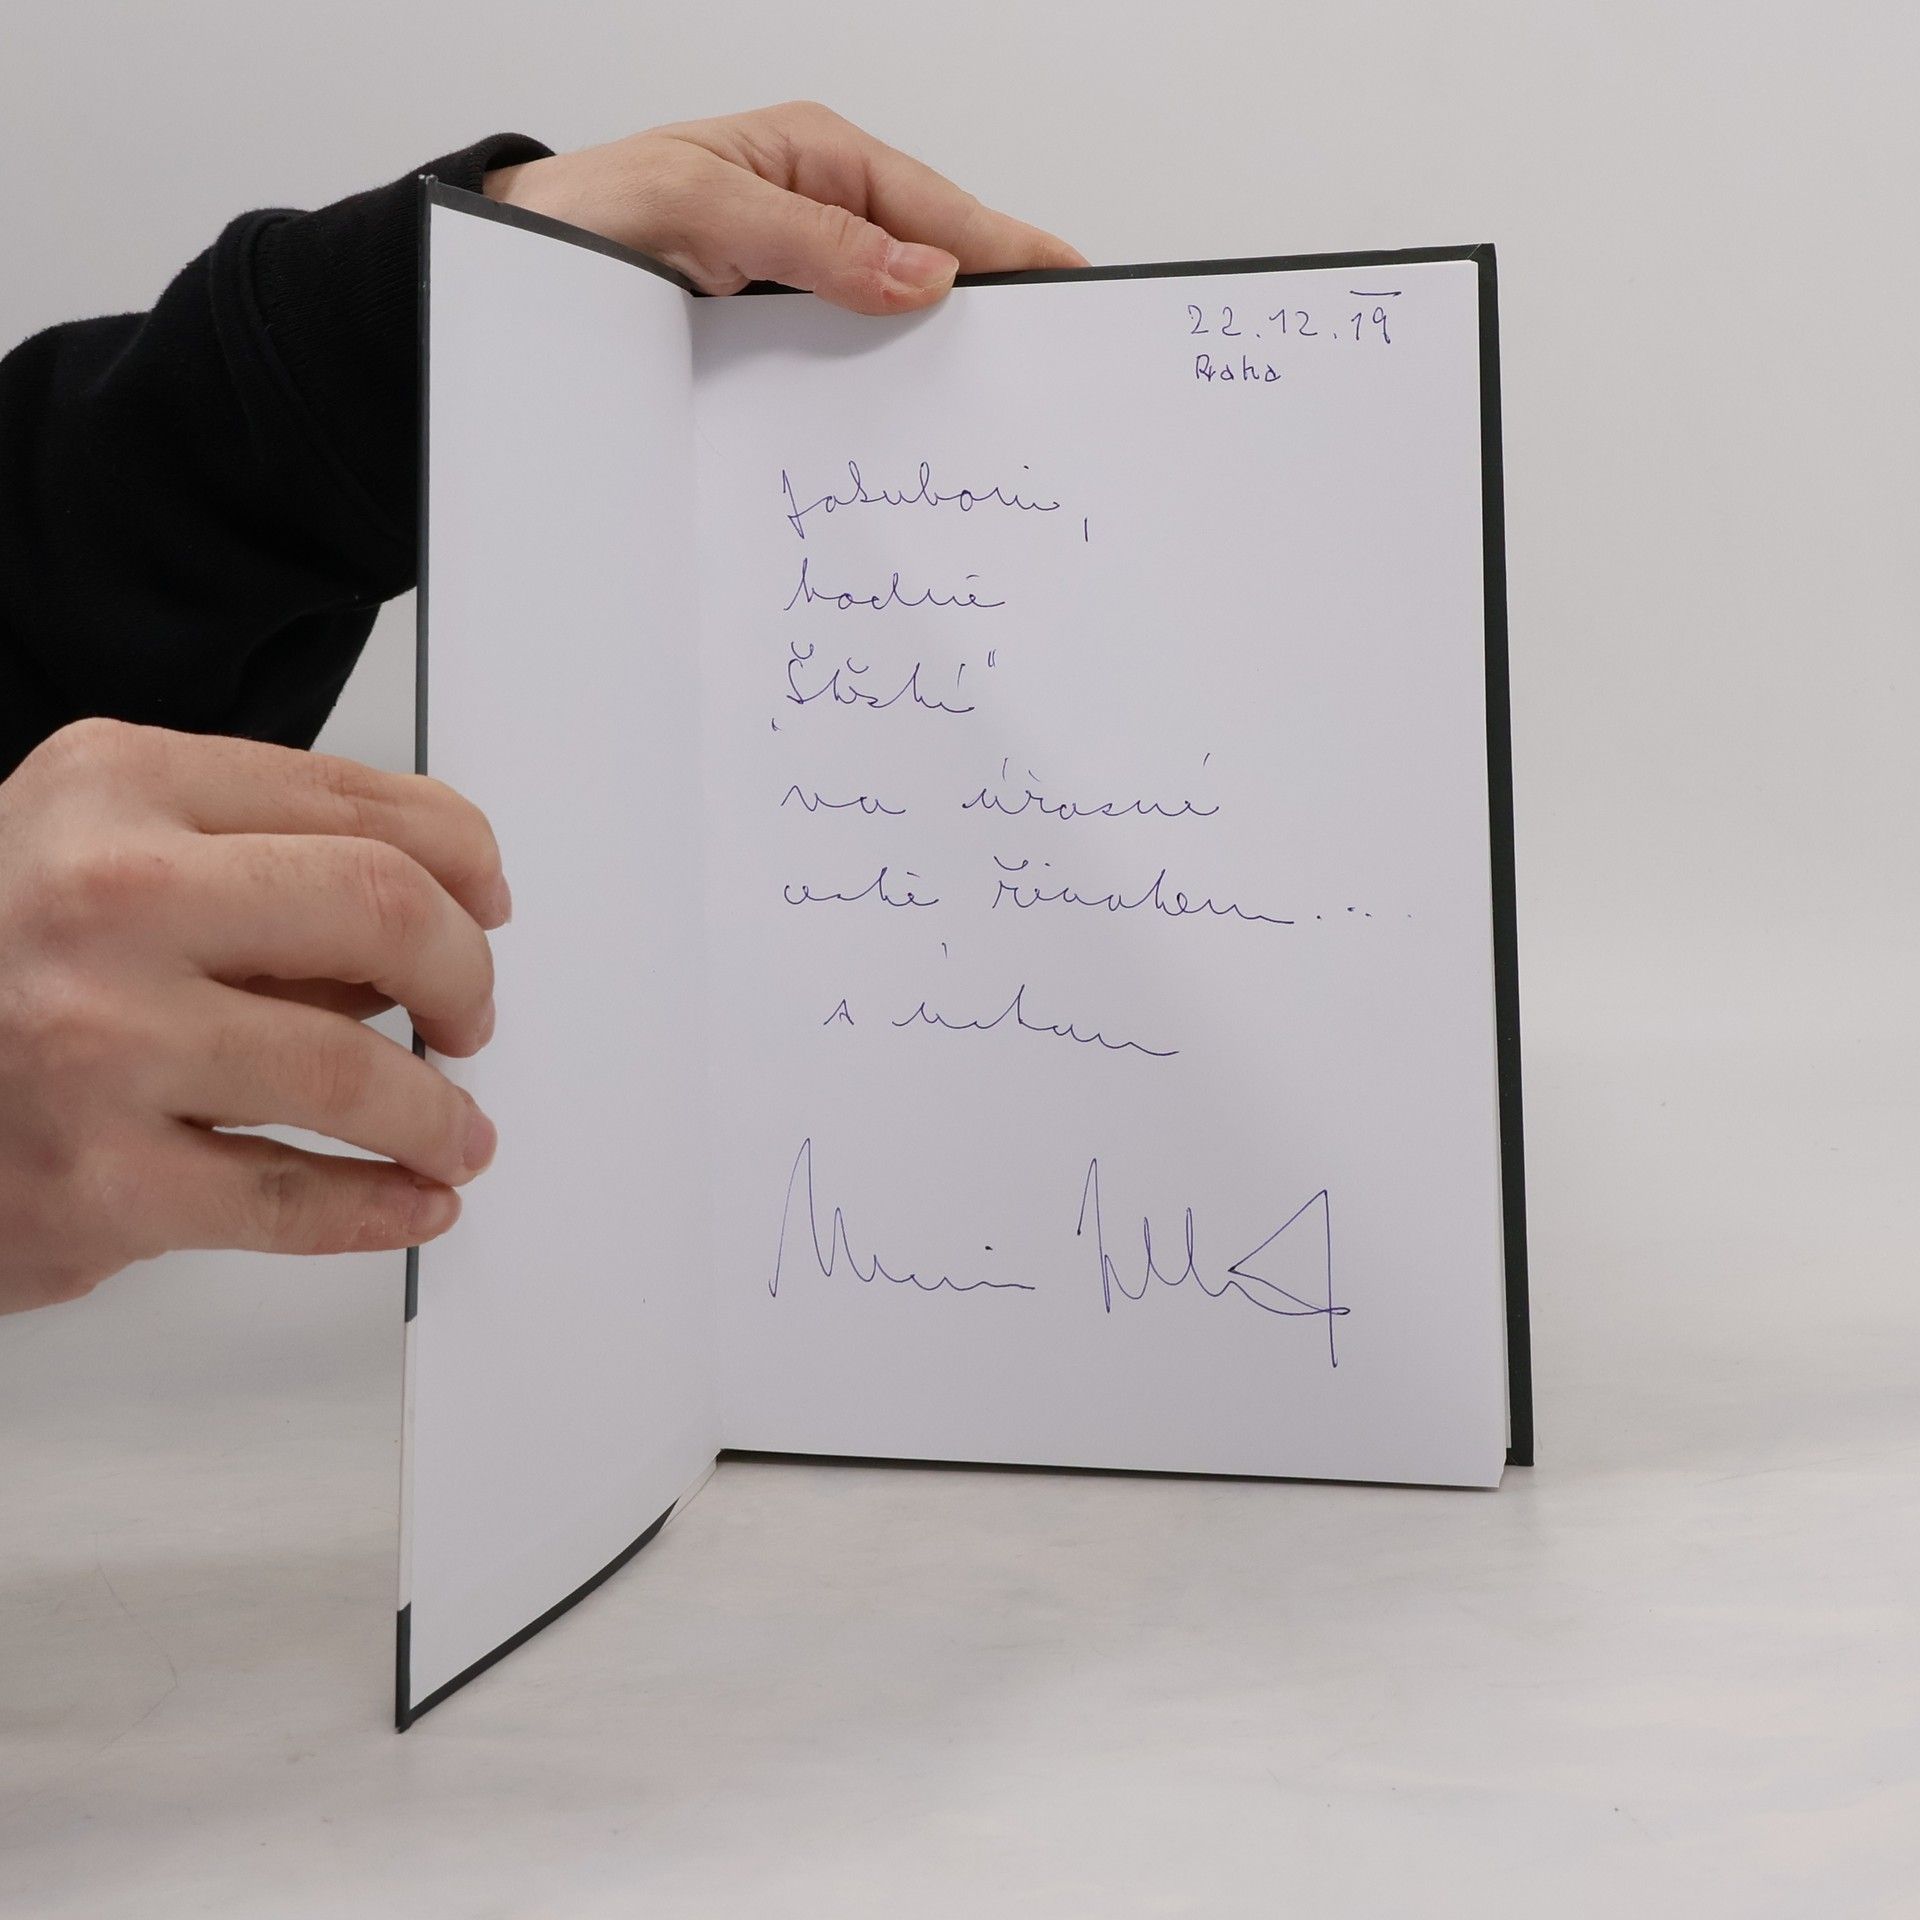 22.12.19
Praha
Jakubovi,
hodně
„Štěstí“
na úžasné
cestě životem....
s úctou